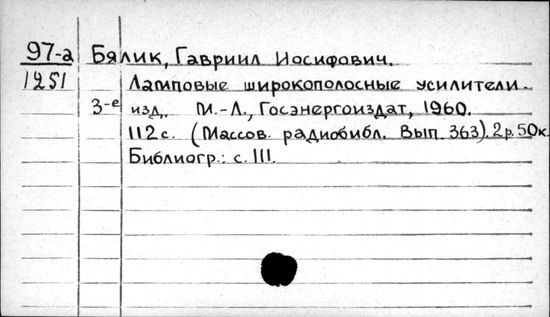 97-а Бялик, Гавриил Иосифович.
1251 Ламповые широкополосные усилители.
3-е изд. М.-Л., Госэнергоиздат, 1960.
112 с. (Массов. радиобибл. Вып. 363). 2 р. 50 к.
Библиогр.: с. 111.